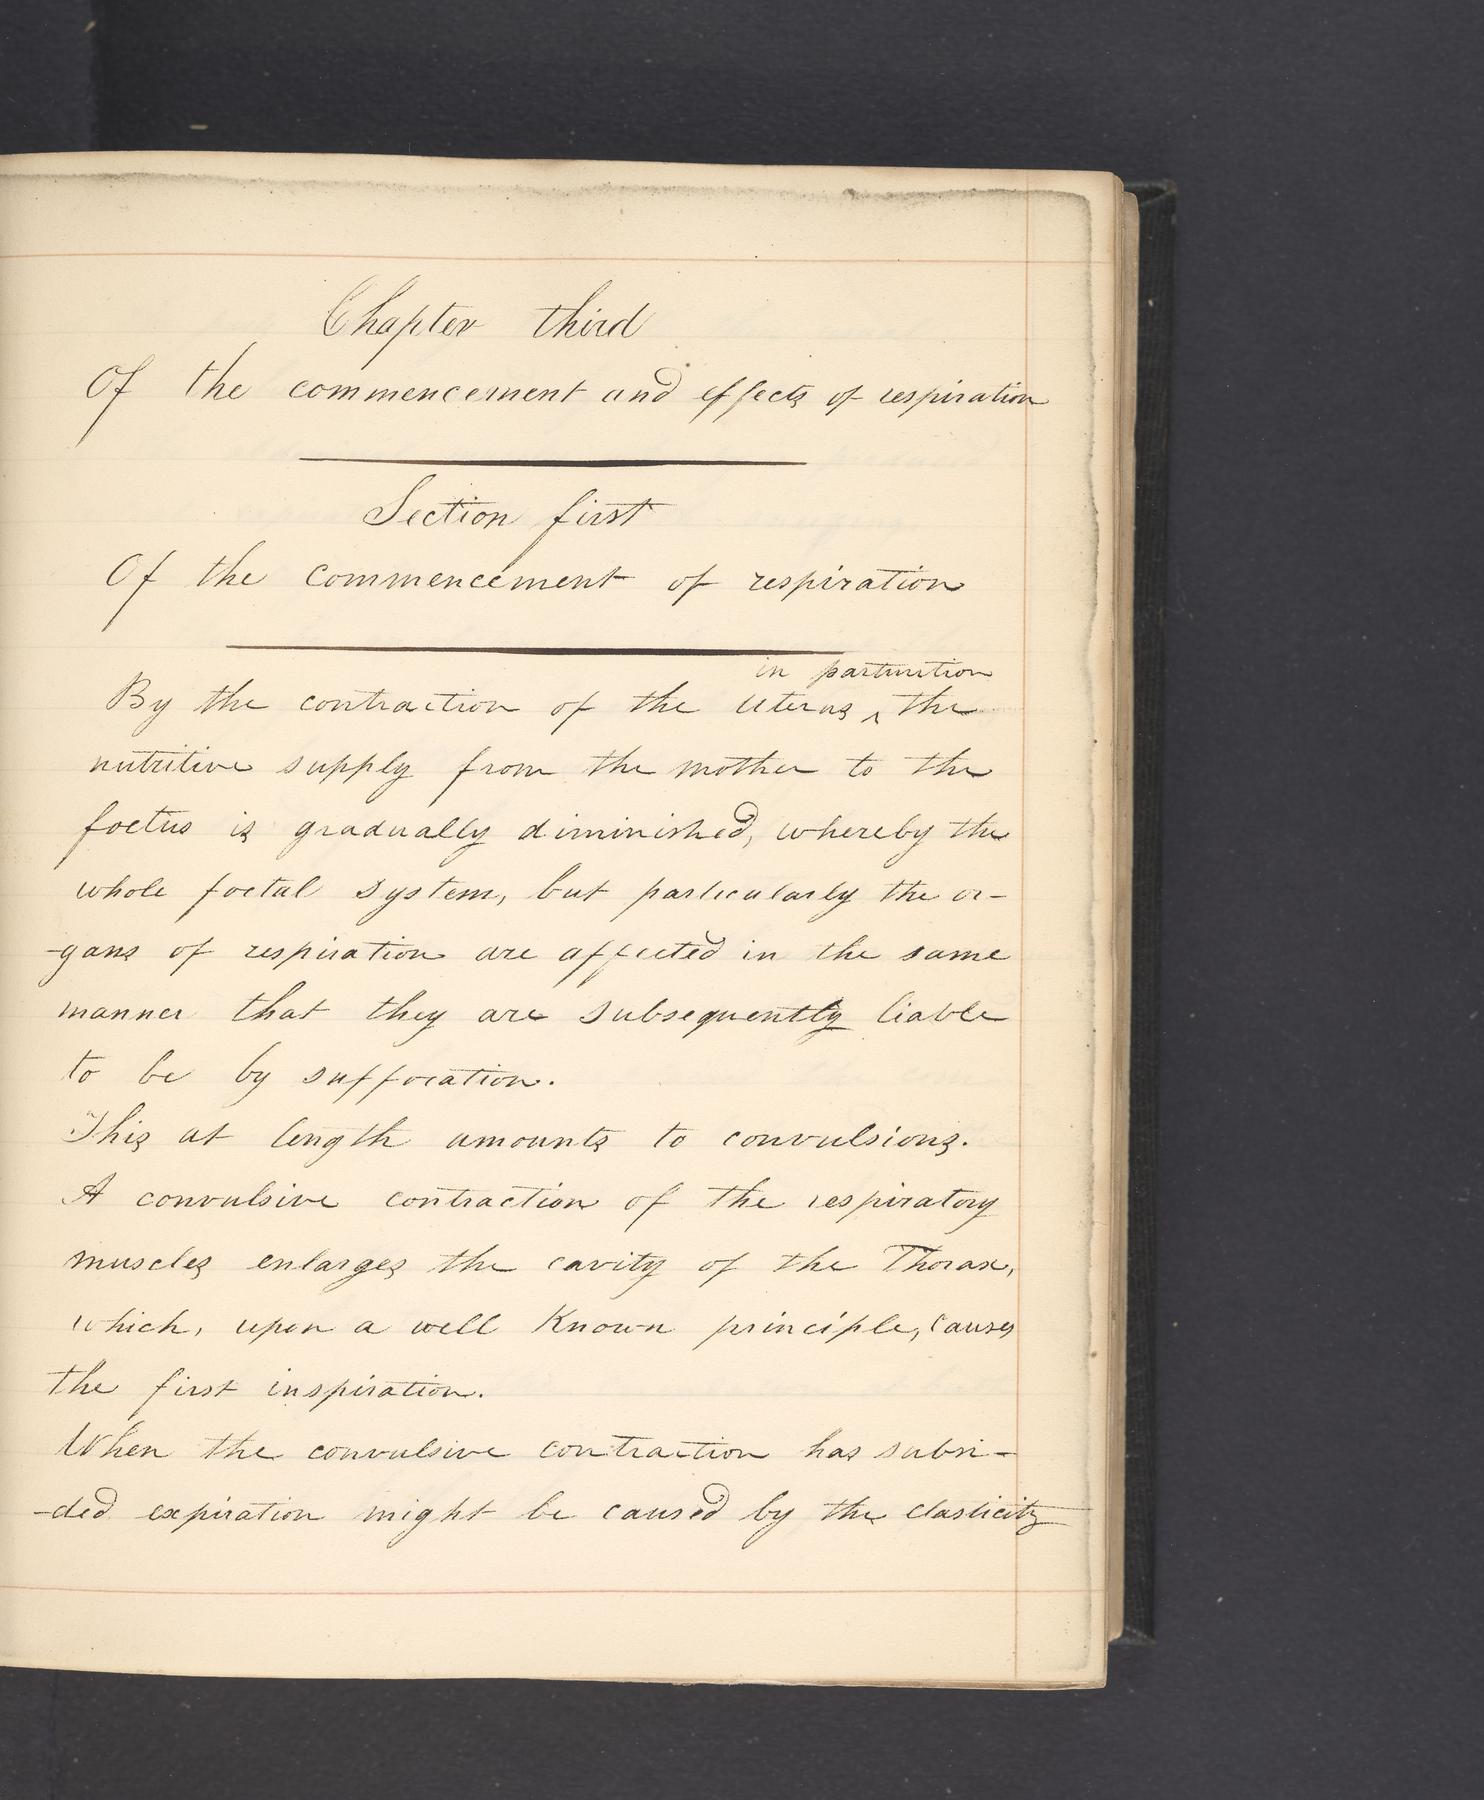 Chapter third
Of the commencement and effects of respiration
Section first
Of the commencement of respiration
in parturition
By the contraction of the uterus ‸ the
nutritive supply from the mother to the
foetus is gradually diminished, whereby the
whole foetal system, but particularly the or-
-gans of respiration are affected in the same
manner that they are subsequently liable
to be by suffocation.
This at length amounts to convulsions.
A convulsive contraction of the respiratory
muscles enlarges the cavity of the Thorax,
which, upon a well Known principle, causes
the first inspiration.
When the convulsive contraction has subsi-
-ded expiration might be caused by the elasticity